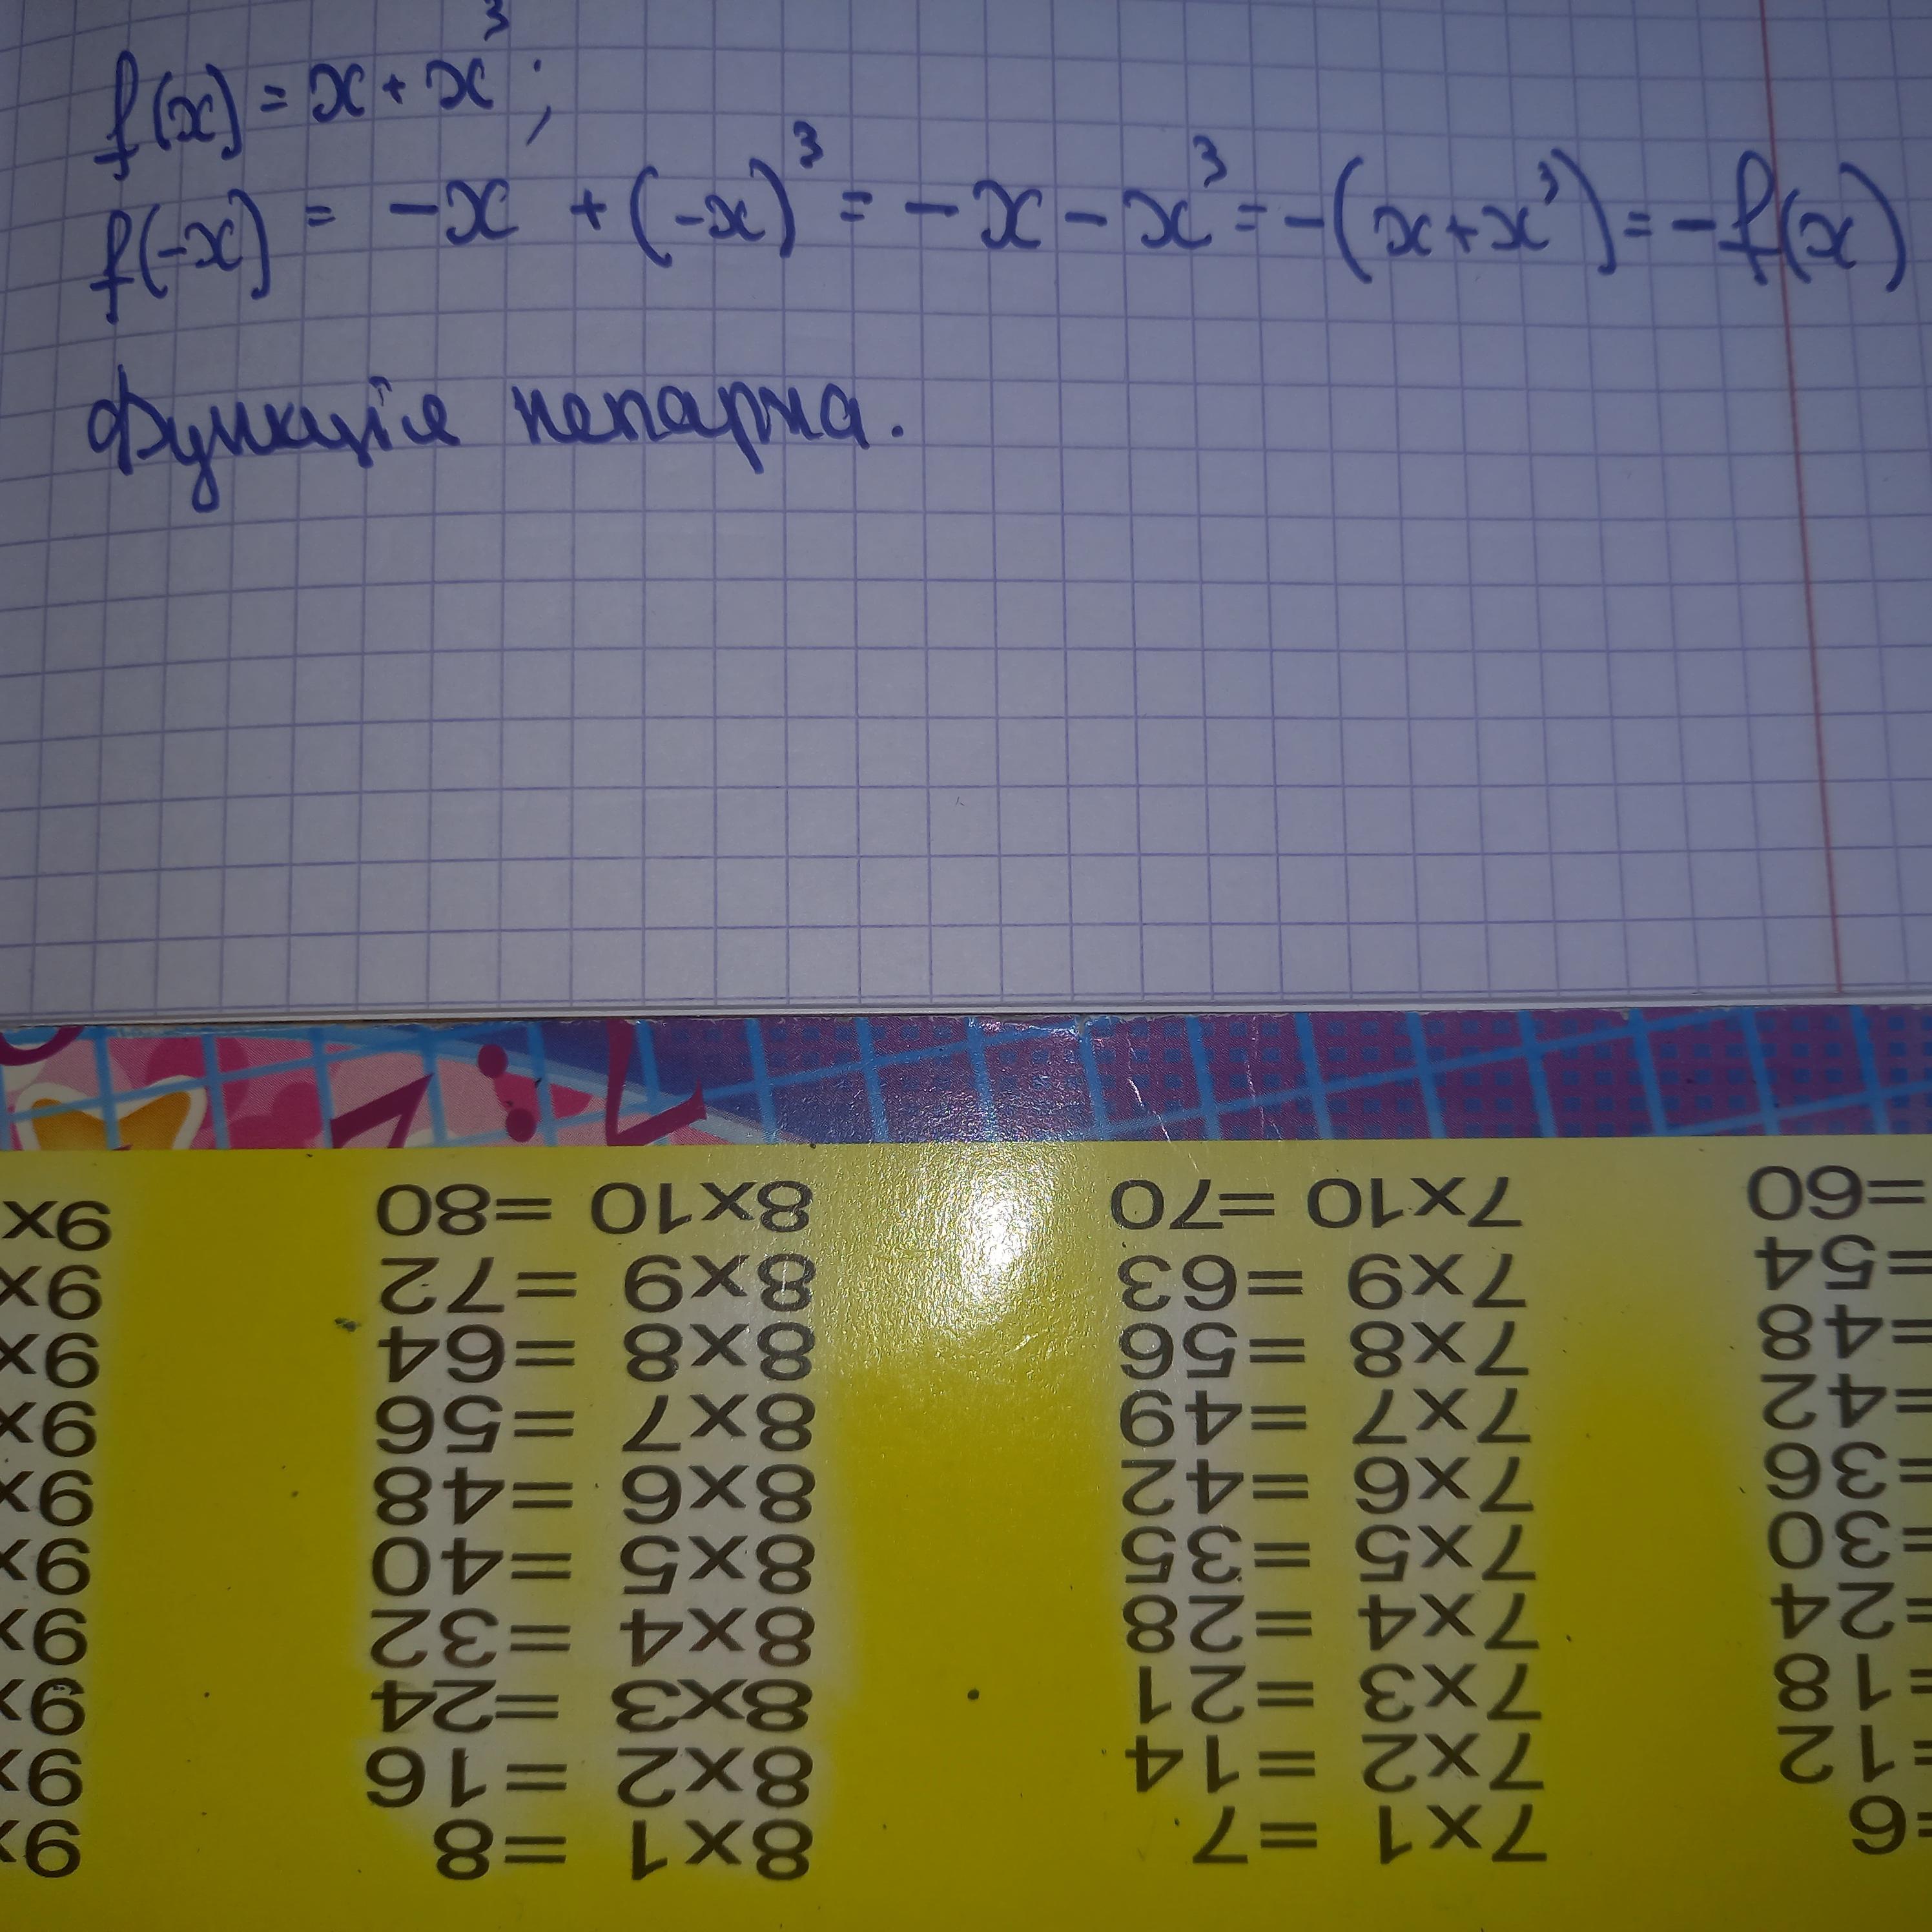 f(x) = x + x³;
f(-x) = -x + (-x)³ = -x - x³ = -(x+x³) = -f(x)
Функція непарна.
6x1 =6
=12
=18
=24
=30
=36
=42
=48
=54
=60
7x1 =7
7x2 =14
7x3 =21
7x4 =28
7x5 =35
7x6 =42
7x7 =49
7x8 =56
7x9 =63
7x10 =70
8x1 =8
8x2 =16
8x3 =24
8x4 =32
8x5 =40
8x6 =48
8x7 =56
8x8 =64
8x9 =72
8x10 =80
9x
9x
9x
9x
9x
9x
9x
9x
9x
9x